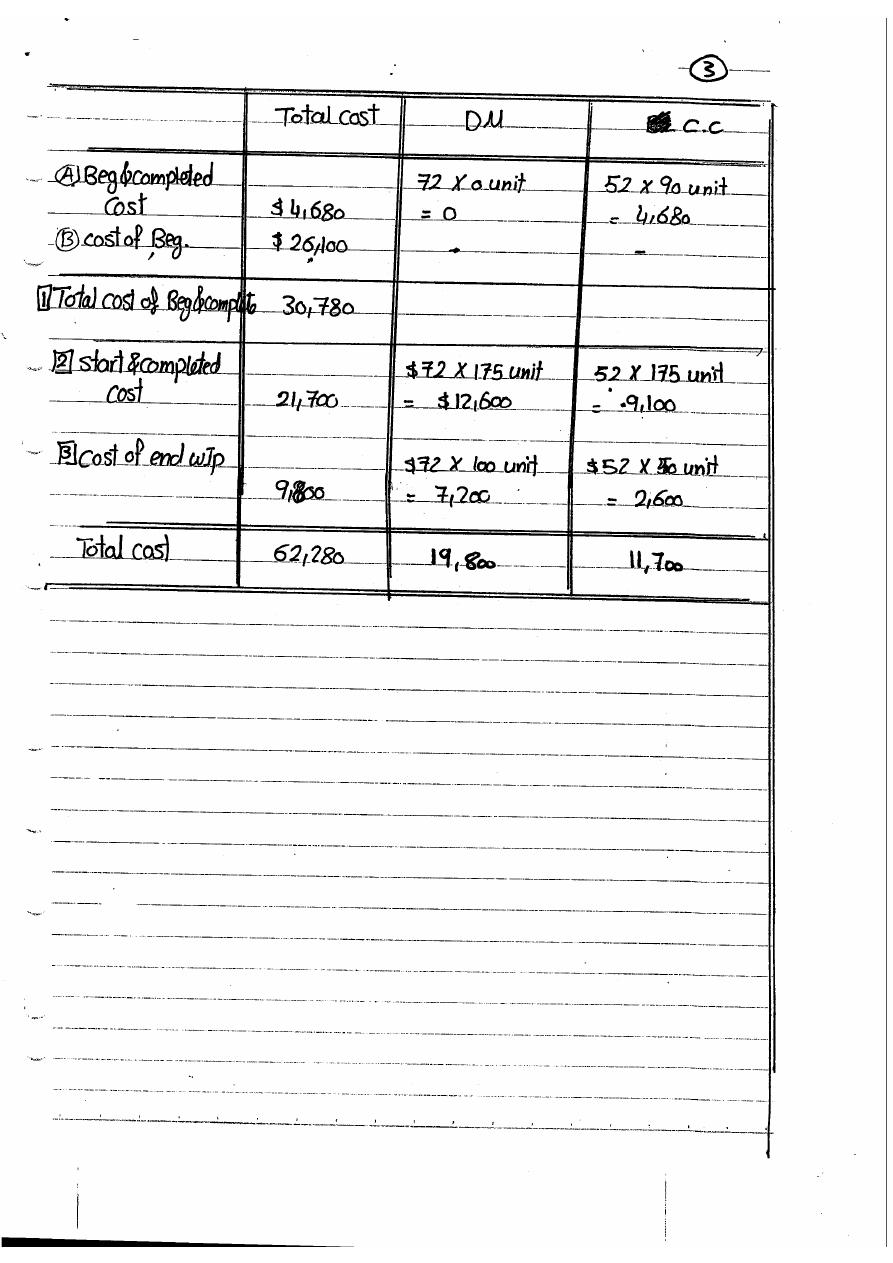 3
Total cost DM C.C
(A) Beg & completed 72 X 0 unit 52 x 90 unit
Cost $ 4,680 = 0 = 4,680
(B) cost of Beg. $ 26,100 - -
[1] Total cost of Beg & complete 30,780
[2] Start & completed $72 X 175 unit 52 X 175 unit
cost 21,700 = $12,600 = 9,100
[3] Cost of end WIp $72 X 100 unit $52 X 50 unit
9,800 = 7,200 = 2,600
Total cost 62,280 19,800 11,700